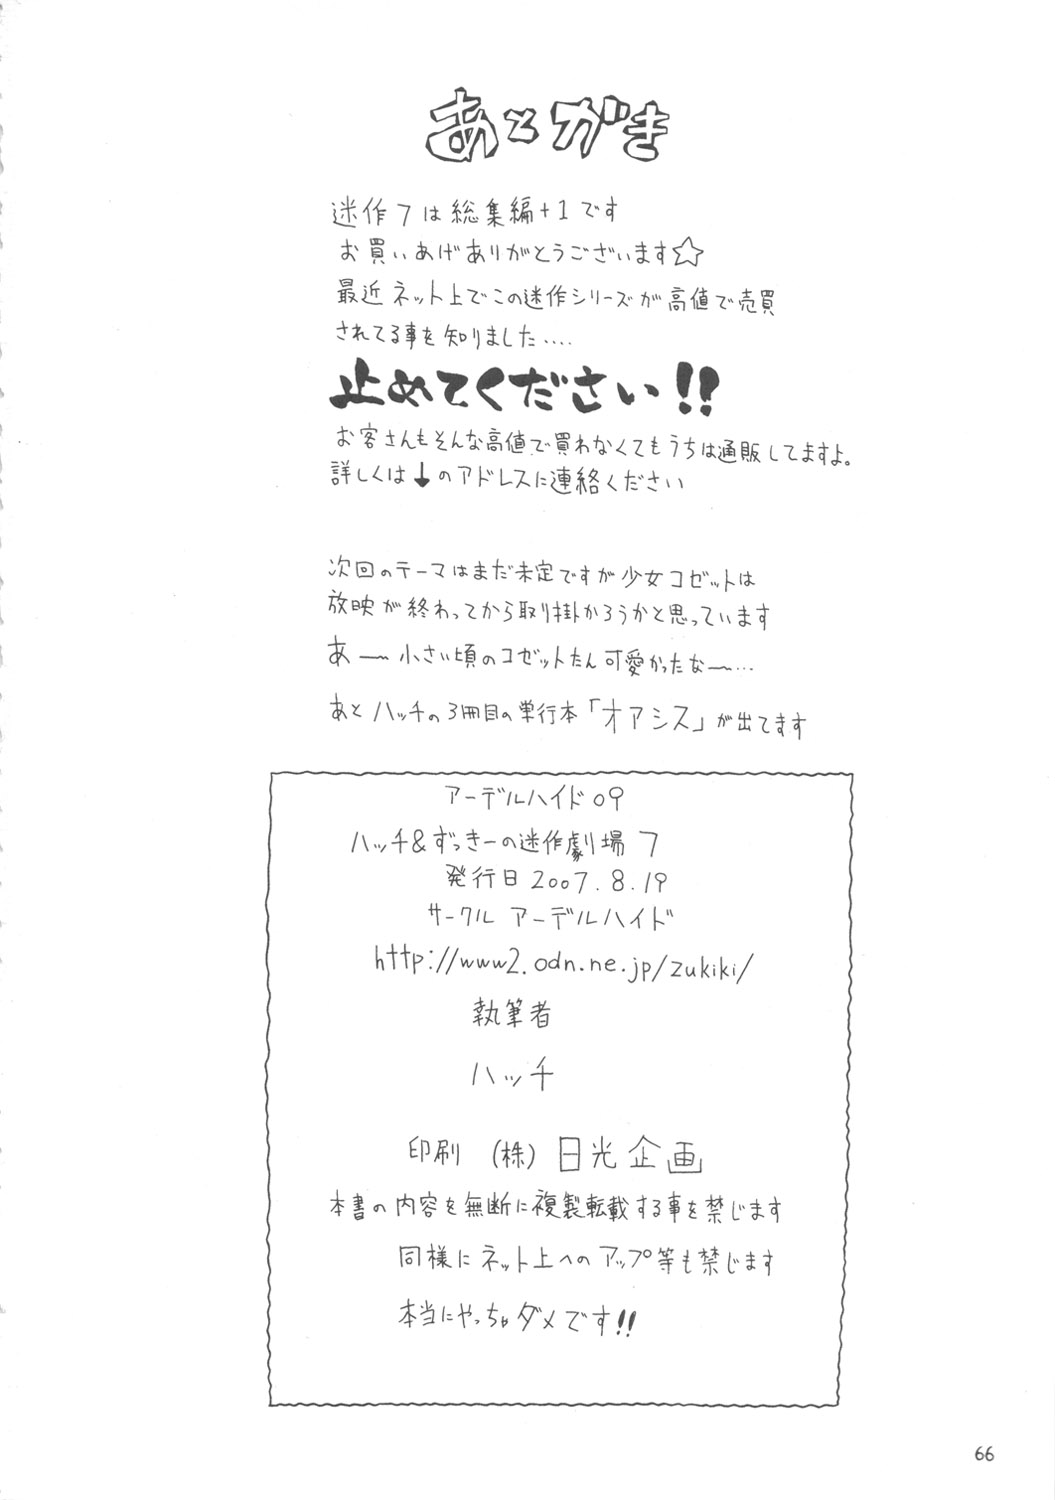 あとがき
迷作7は総集編+1です
お買いあげありがとうございます☆
最近ネット上でこの迷作シリーズが高値で売買
されてる事を知りました‥‥
止めてください!!
お客さんもそんな高値で買わなくてもうちは通販してますよ。
詳しくは↓のアドレスに連絡ください
次回のテーマはまだ未定ですが少女コゼットは
放映が終わってから取り掛かろうかと思っています
あ〜小さい頃のコゼットたん可愛かったな〜…
あとハッチの3冊目の単行本「オアシス」が出てます
アーデルハイド09
ハッチ&ずっきーの迷作劇場7
発行日2007.8.19
サークル アーデルハイド
http://www2.odn.ne.jp/zukiki/
執筆者
ハッチ
印刷 (株) 日光企画
本書の内容を無断に複製転載する事を禁じます
同様にネット上へのアップ等も禁じます
本当にやっちゃダメです!!
66